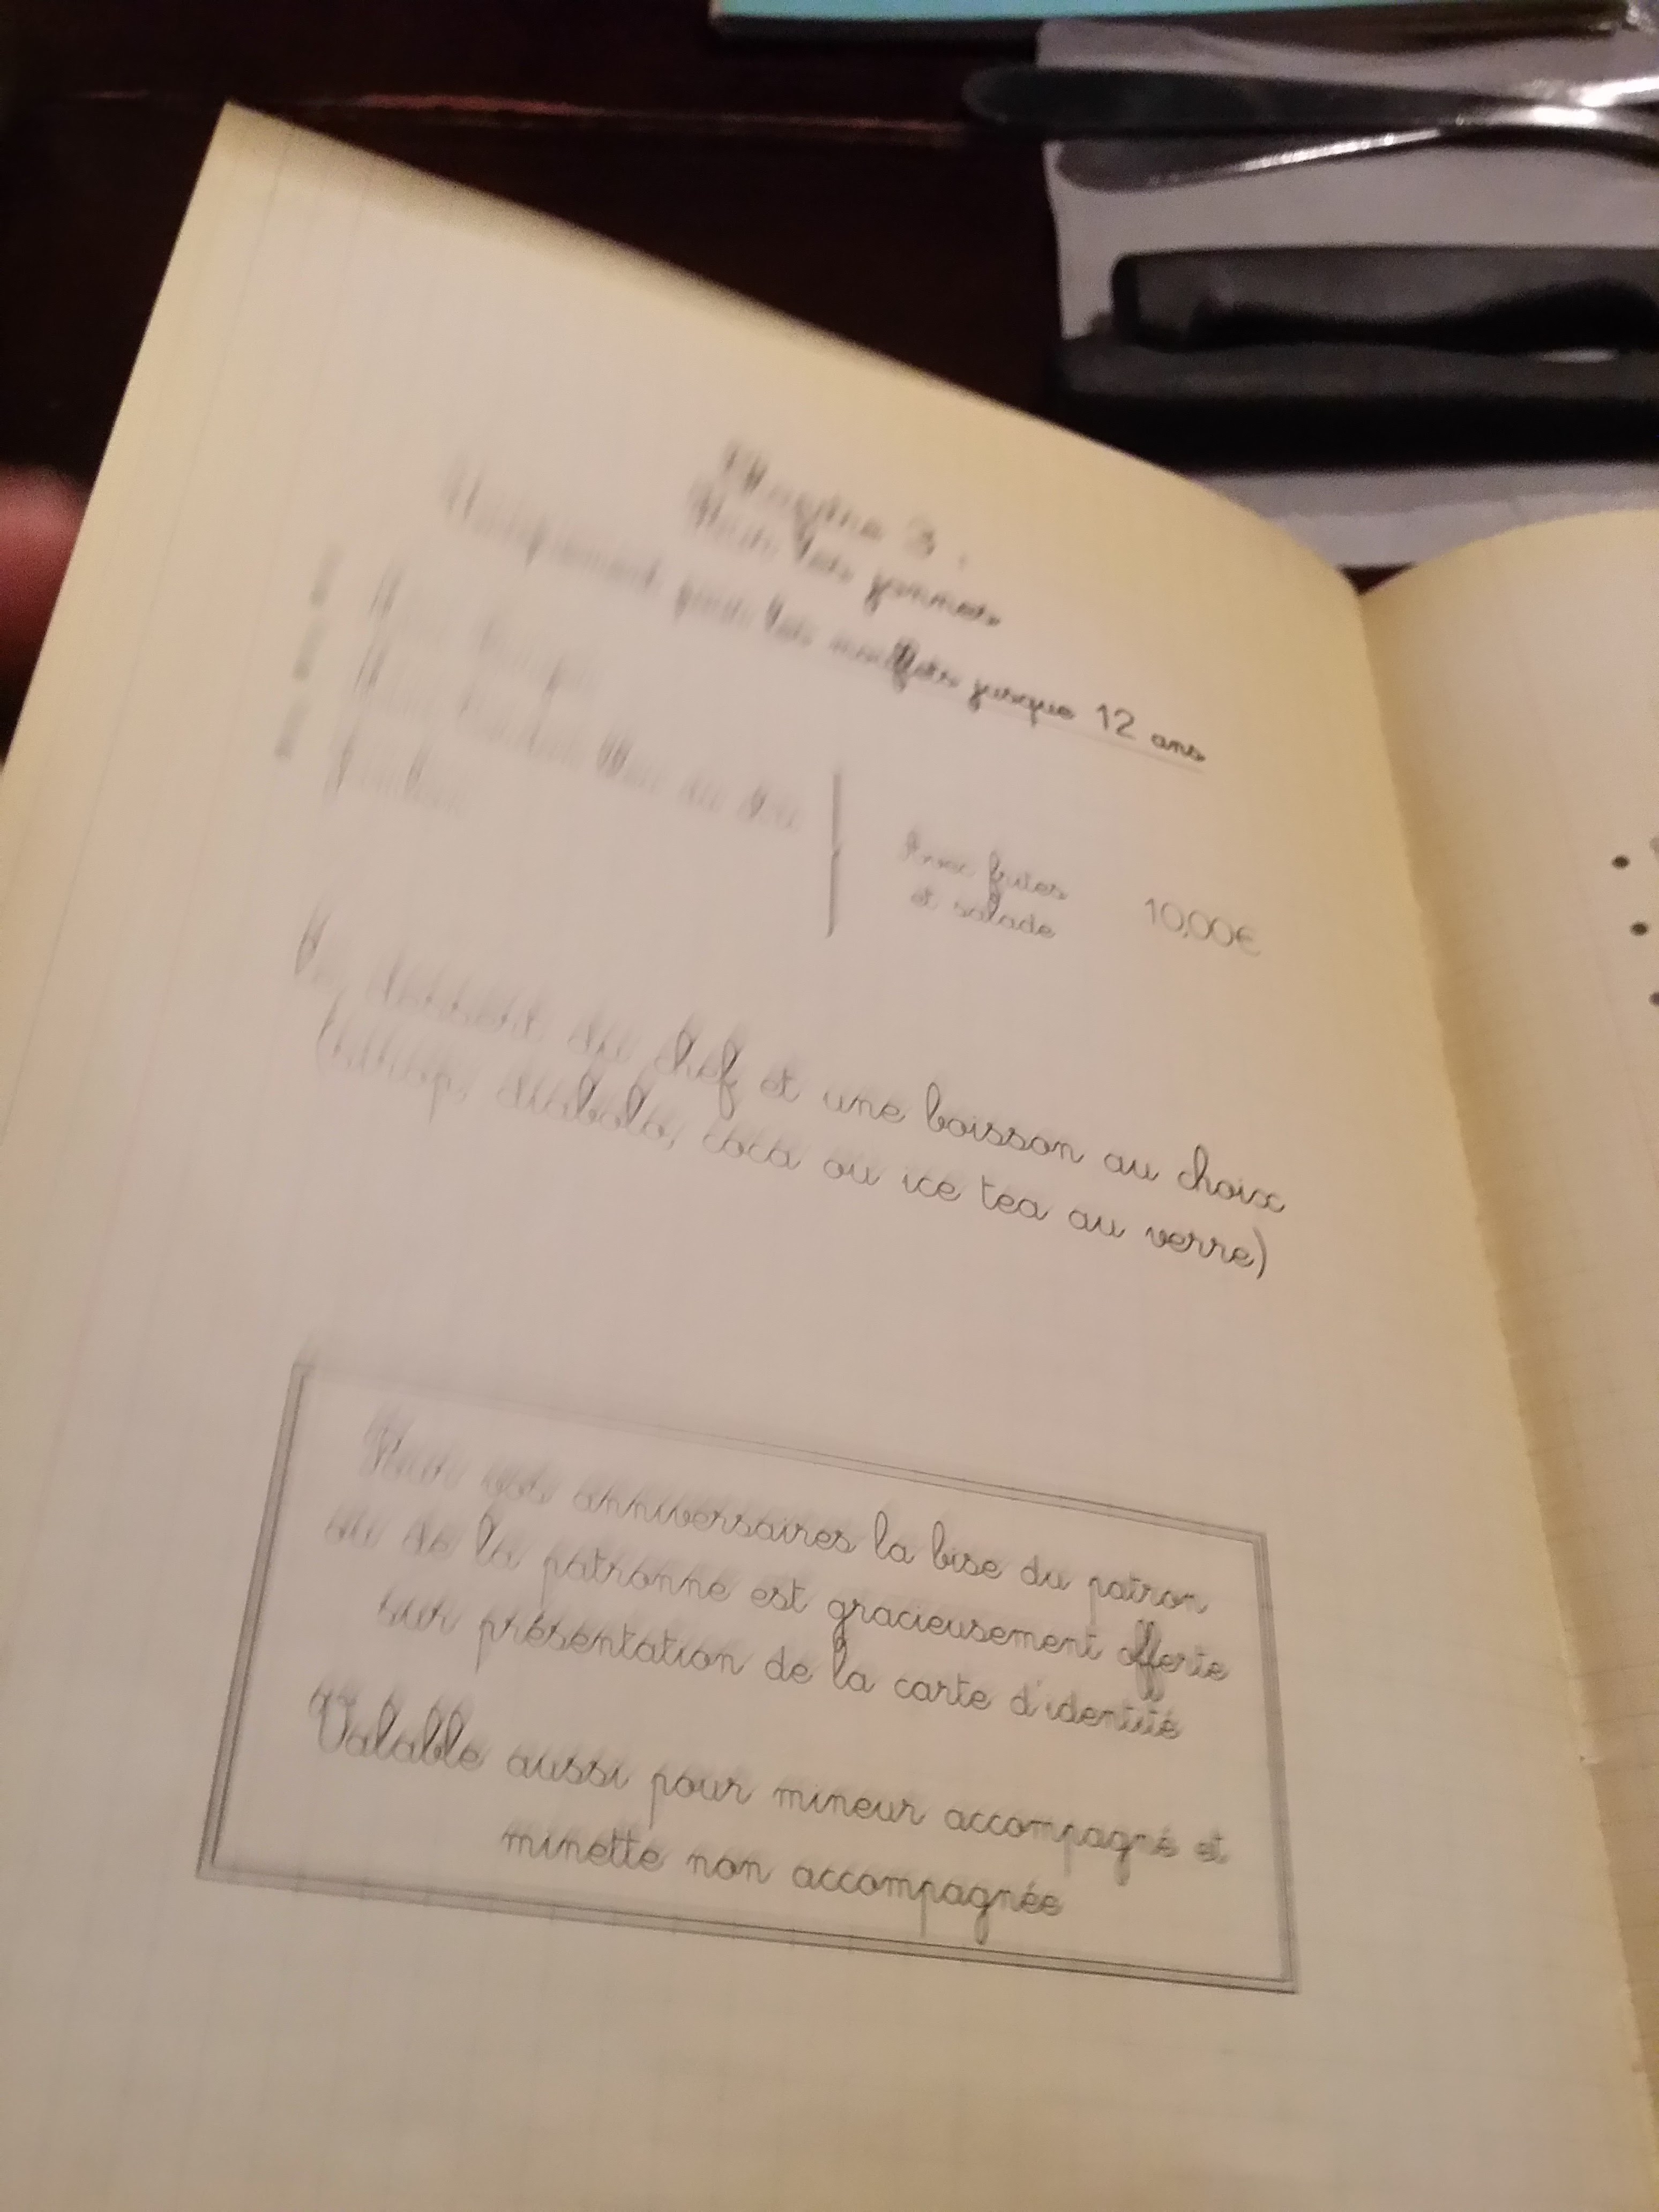 3 :
Pour les
Uniquement pour les jusque 12 ans
Avec frites
et salade
10,00€
Un dessert du chef et une boisson au choix
(sirop, diabolo, coca ou ice tea au verre)
Pour vos anniversaires la bise du patron
ou de la patronne est gracieusement offerte
sur présentation de la carte d'identité
Valable aussi pour mineur accompagné et
minette non accompagnée